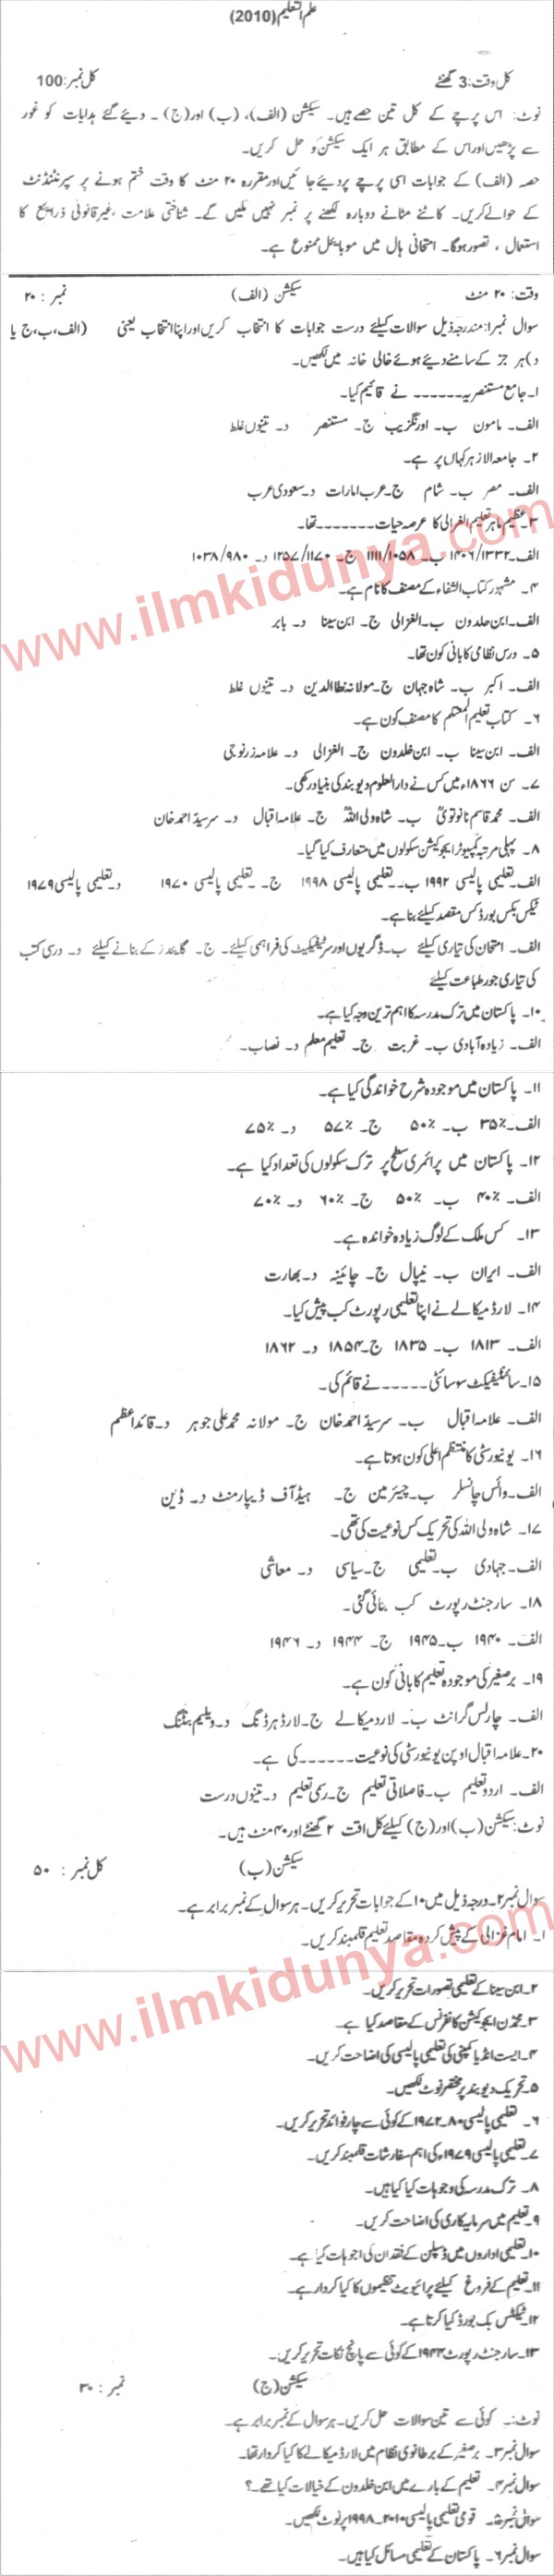 علم التعلیم (2010)
کل وقت: 3 گھنٹے کل نمبر: 100
نوٹ: اس پرچے کے کل تین حصے ہیں۔ سیکشن (الف)، (ب) اور (ج) ۔ دیئے گئے ہدایات کو غور
سے پڑھیں اور اس کے مطابق ہر ایک سیکشن کو حل کریں۔
حصہ (الف) کے جوابات اسی پرچے پر دیئے جائیں اور مقررہ ۲۰ منٹ کا وقت ختم ہونے پر سپرنٹنڈنٹ
کے حوالے کریں۔ کاٹنے مٹانے دوبارہ لکھنے پر نمبر نہیں ملیں گے۔ شناختی علامت ،غیر قانونی ذرایع کا
استعمال ، تصور ہوگا۔ امتحانی ہال میں موبائیل ممنوع ہے۔
وقت: ۲۰ منٹ سیکشن (الف) نمبر : ۲۰
سوال نمبر۱: مندرجہ ذیل سوالات کیلئے درست جوابات کا انتخاب کریں اور اپنا انتخاب یعنی (الف،ب،ج یا
د) ہر جز کے سامنے دیئے ہوئے خالی خانہ میں لکھیں۔
۱۔ جامع مستنصریہ ۔۔۔۔۔۔ نے قائیم کیا۔
الف۔ مامون ب۔ اورنگزیب ج۔ مستنصر د۔ تینوں غلط
۲۔ جامعہ الازہر کہاں پر ہے۔
الف۔ مصر ب۔ شام ج۔ عرب امارات د۔ سعودی عرب
۳۔ عظیم ماہر تعلیم الغزالی کا عرصہ حیات ۔۔۔۔۔۔۔ تھا۔
الف۔ ۱۴۰۶/۱۳۳۲ ب۔ ۱۱۱۱/۱۰۵۸ ج۔ ۱۲۵۷/۱۱۷۰ د۔ ۱۰۳۸/۹۸۰
۴۔ مشہور کتاب الشفاء کے مصنف کا نام ہے۔
الف۔ ابن خلدون ب۔ الغزالی ج۔ ابن سینا د۔ بابر
۵۔ درس نظامی کا بانی کون تھا۔
الف۔ اکبر ب۔ شاہ جہان ج۔ مولانہ نظاالدین د۔ تینوں غلط
۶۔ کتاب تعلیم المتعلم کا مصنف کون ہے۔
الف۔ ابن سینا ب۔ ابن خلدون ج۔ الغزالی د۔ علامہ زرنوجی
۷۔ سن ۱۸۶۶ء میں کس نے دارالعلوم دیوبند کی بنیاد رکھی۔
الف۔ محمد قاسم نانوتویؒ ب۔ شاہ ولی اللہؒ ج۔ علامہ اقبال د۔ سر سید احمد خان
۸۔ پہلی مرتبہ کمپیوٹر ایجوکیشن سکولوں میں متعارف کیا گیا۔
الف۔ تعلیمی پالیسی ۱۹۹۲ ب۔ تعلیمی پالیسی ۱۹۹۸ ج۔ تعلیمی پالیسی ۱۹۷۰ د۔ تعلیمی پالیسی ۱۹۷۹
ٹیکس بکس بورڈ کس مقصد کیلئے بنا ہے۔
الف۔ امتحان کی تیاری کیلئے ب۔ ڈگریوں اور سرٹیفیکیٹ کی فراہمی کیلئے۔ ج۔ کے بنانے کیلئے د۔ درسی کتب
کی تیاری جور طباعت کیلئے
۱۰۔ پاکستان میں ترک مدرسہ کا اہم ترین وجہ کیا ہے۔
الف۔ زیادہ آبادی ب۔ غربت ج۔ تعلیم معلم د۔ نصاب۔
۱۱۔ پاکستان میں موجودہ شرح خواندگی کیا ہے۔
الف۔ ۳۵٪ ب۔ ۵۰٪ ج۔ ۵۷٪ د۔ ۷۵٪
۱۲۔ پاکستان میں پرائمری سطح پر ترک سکولوں کی تعداد کیا ہے۔
الف۔ ۴۰٪ ب۔ ۵۰٪ ج۔ ۶۰٪ د۔ ۷۰٪
۱۳۔ کس ملک کے لوگ زیادہ خواندہ ہے۔
الف۔ ایران ب۔ نیپال ج۔ چائینہ د۔ بھارت
۱۴۔ لارڈ میکالے نے اپنا تعلیمی رپورٹ کب پیش کیا۔
الف۔ ۱۸۱۳ ب۔ ۱۸۳۵ ج۔ ۱۸۵۴ د۔ ۱۸۶۲
۱۵۔ سائنٹیفیکٹ سوسائٹی ۔۔۔۔۔ نے قائم کی۔
الف۔ علامہ اقبال ب۔ سر سید احمد خان ج۔ مولانہ محمد علی جوہر د۔ قائد اعظم
۱۶۔ یونیورسٹی کا منتظم اعلی کون ہوتا ہے۔
الف۔ وائس چانسلر ب۔ چیئرمین ج۔ ہیڈ آف ڈیپارمنٹ د۔ ڈین
۱۷۔ شاہ ولی اللہ کی تحریک کس نوعیت کی تھی۔
الف۔ جہادی ب۔ تعلیمی ج۔ سیاسی د۔ معاشی
۱۸۔ سارجنٹ رپورٹ کب بنائی گئی۔
الف۔ ۱۹۴۰ ب۔ ۱۹۴۵ ج۔ ۱۹۴۴ د۔ ۱۹۴۶
۱۹۔ برصغیر کی موجودہ تعلیم کا بانی کون ہے۔
الف۔ چارلس گرانٹ ب۔ لارد میکالے ج۔ لارڈ ہرڈنگ د۔ ویلیم بنٹنگ
۲۰۔ علامہ اقبال اوپن یونیورسٹی کی نوعیت ۔۔۔۔۔۔ کی ہے۔
الف۔ اردو تعلیم ب۔ فاصلاتی تعلیم ج۔ رسمی تعلیم د۔ تینوں درست
نوٹ: سیکشن (ب) اور (ج) کیلئے کل اقت ۲ گھنٹے اور ۴۰ منٹ ہیں۔
سیکشن (ب) کل نمبر : ۵۰
سوال نمبر ۲۔ درجہ ذیل میں ۱۰ کے جوابات تحریر کریں۔ ہر سوال کے نمبر برابر ہے۔
۱۔ امام غزالی کے پیش کردہ مقاصد تعلیم قلمبند کریں۔
۲۔ ابن سینا کے تعلیمی تصورات تحریر کریں۔
۳۔ محمڈن ایجوکیشن کانفرنس کے مقاصد کیا ہے۔
۴۔ ایسٹ انڈیا کمپنی کی تعلیمی پالیسی کی اضاحت کریں۔
۵۔ تحریک دیوبند پر مختصر نوٹ لکھیں۔
۶۔ تعلیمی پالیسی ۸۰۔۱۹۷۲ کے کوئی سے چار فوائد تحریر کریں۔
۷۔ تعلیمی پالیسی ۱۹۷۹ء کی اہم سفارشات قلمبند کریں۔
۸۔ ترک مدرسہ کی وجوہات کیا کیا ہیں۔
۹۔ تعلیم میں سرمایہ کاری کی اضاحت کریں۔
۱۰۔ تعلیمی اداروں میں ڈسپلن کے فقدان کی اجوہات کیا ہے۔
۱۱۔ تعلیم کے فروغ کیلئے پرائیویٹ تنظیموں کا کیا کردار ہے۔
۱۲۔ ٹیکٹس بک بورڈ کیا کرتا ہے۔
۱۳۔ سارجنٹ رپورٹ ۱۹۴۴ کے کوئی سے پانچ نکات تحریر کریں۔
سیکشن (ج) نمبر : ۳۰
نوٹ:۔ کوئی سے تین سوالات حل کریں۔ ہر سوال کے نمبر برابر ہے۔
سوال نمبر ۳۔ برصغیر کے برطانوی نظام میں لارڈ میکالے کا کیا کردار تھا۔
سوال نمبر ۴۔ تعلیم کے بارے میں ابن خلدون کے خیالات کیا تھے۔؟
سوال نمبر ۵۔ قومی تعلیمی پالیسی ۲۰۱۰۔۱۹۹۸ پر نوٹ لکھیں۔
سوال نمبر ۶۔ پاکستان کے تعلیمی مسائل کیا ہیں۔
www.ilmkidunya.com
www.ilmkidunya.com